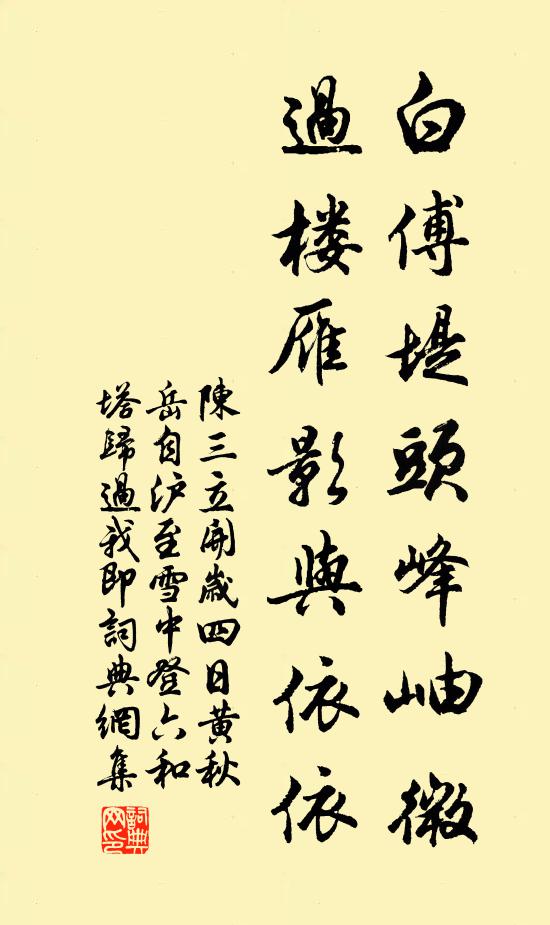 白傅堤頭峰岫微
過楼雁影與依依
陳三立開歲四日黃秋
岳自沪至雪中登六和
塔歸過我即詞典網集
詞典網印